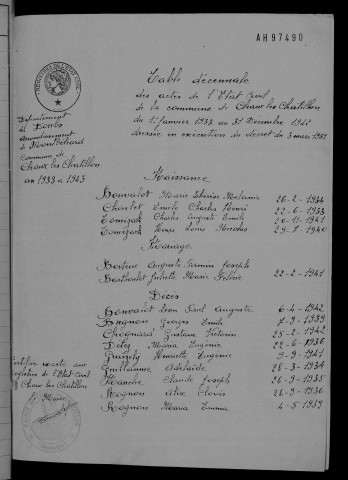 AH 97490
Table décennale
des actes de l'Etat Civil
de la commune de Chaux les Chatillon
du 1er janvier 1933 au 31 Décembre 1942
dressée en exécution du décret du 3 mars 1951
Département
du Doubs
Arrondissement
de Montbéliard
Commune de
Chaux les Chatillon
an 1933 à 1943
Naissance
Bonvalot Marie Thérèse 26-2-1934
Charles Henri 22-6-1933
Charles Auguste Emile 20-11-1941
Louis Nicolas 1940
Mariage
Auguste Firmin Joseph
Berthoulot Juliette Marie 22-2-1941
Décès
Bonvalot Léon Paul Auguste 6-4-1942
Georges Emile 7-9-1939
Gustave 25-1-1942
Maria Eugénie 22-6-1936
Henriette Eugénie 9-9-1941
Guillaume Adelaïde 28-3-1934
Claude Joseph 26-9-1935
Rognon Alix Clovis 26-9-1936
Rognon Maria Emma 4-5-1939
Certifiée exacte aux
registres de l'Etat Civil
de Chaux les Chatillon
le Maire